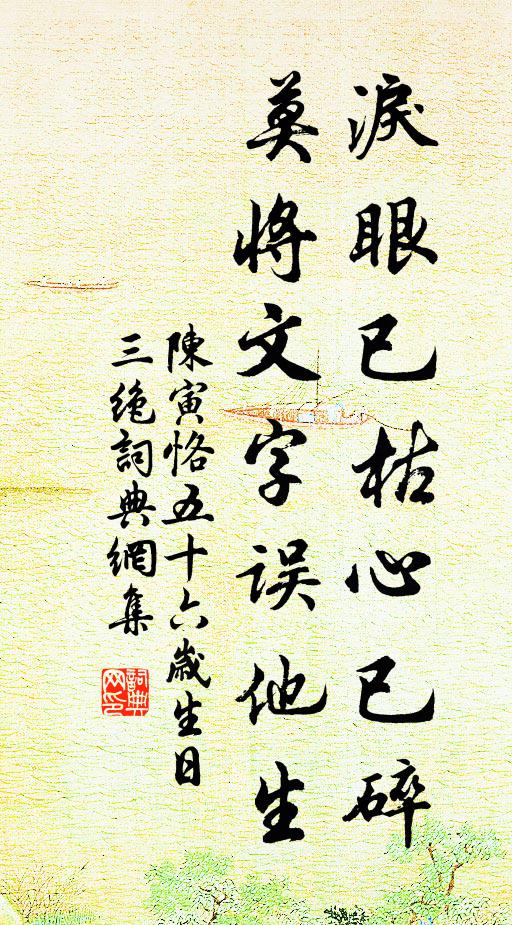 淚眼已枯心已碎
莫將文字誤他生
陳寅恪五十六歲生日
三絕詞典網集
詞典
网印